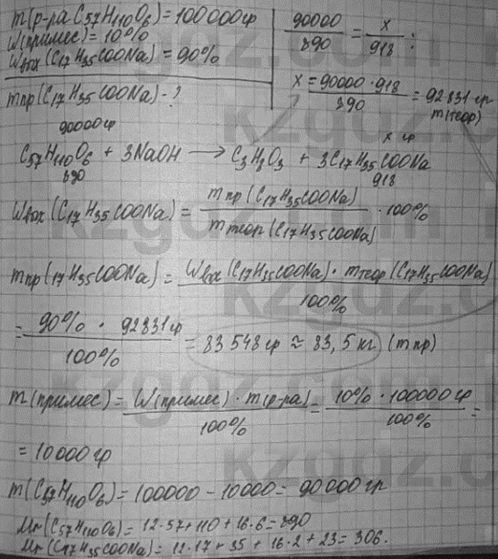 m(р-ра C₅₇H₁₁₀O₆) = 100000 гр
W(примес) = 10%
Wвых(C₁₇H₃₅COONa) = 90%
mпр(C₁₇H₃₅COONa) - ?
90000/890 = x/918 ;
x = 90000·918/890 = 92831 гр
mтеор)
90000 гр x гр
C₅₇H₁₁₀O₆ + 3NaOH → C₃H₈O₃ + 3C₁₇H₃₅COONa
890 918
Wвых(C₁₇H₃₅COONa) = mпр(C₁₇H₃₅COONa)/mтеор(C₁₇H₃₅COONa) · 100%
mпр(17H₃₅COONa) = Wвых(C₁₇H₃₅COONa) · mтеор(C₁₇H₃₅COONa)/100%
= 90% · 92831 гр/100% = 83548 гр ≈ 83,5 кг (mпр)
m(примес) = W(примес) · m(р-ра)/100% = 10% · 100000 гр/100% =
= 10000 гр
m(C₅₇H₁₁₀O₆) = 100000 - 10000 = 90000 гр
Mr(C₅₇H₁₁₀O₆) = 12·57 + 110 + 16·6 = 890
Mr(C₁₇H₃₅COONa) = 12·17 + 35 + 16·2 + 23 = 306.
kzgdz.com